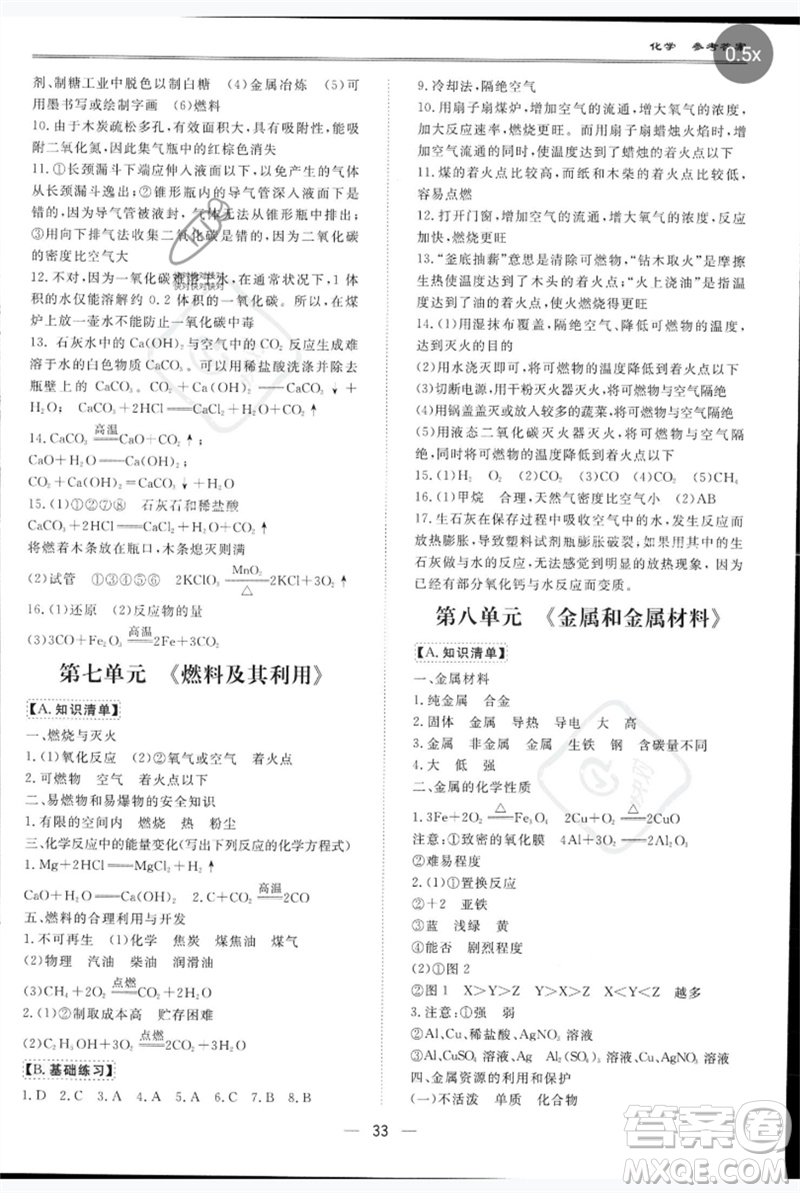 化学 参考答案
0.5x
剂、制糖工业中脱色以制白糖 (4)金属冶炼 (5)可
用墨书写或绘制字画 (6)燃料
10. 由于木炭疏松多孔,有效面积大,具有吸附性,吸附
二氧化氮,因此集气瓶中的红棕色消失
11. ①长颈漏斗下端应伸入液面以下,否则产生的气体
从长颈漏斗逸出;②锥形瓶内的导气管深入液面下是
错的,因为导气管被液封,气体无法从锥形瓶中导出;
③用向下排气法收集二氧化碳是错的,因为二氧化碳
的密度比空气大
12. 不对,因为一氧化碳难溶于水,在通常状况下,1 体
积的水仅能溶解约 0.2 体积的一氧化碳。所以,在煤
炉上放一壶水不能防止一氧化碳中毒
13. 石灰水中 Ca(OH)₂ 与空气中 CO₂ 反应生成难
溶于水的白色物质 CaCO₃。可以用稀盐酸洗涤并除去
瓶壁上的 CaCO₃ CO₂+Ca(OH)₂══CaCO₃↓+
H₂O; CaCO₃+2HCl══CaCl₂+H₂O+CO₂↑
14. CaCO₃ 高温══ CaO+CO₂↑;
CaO+H₂O══Ca(OH)₂;
CO₂+Ca(OH)₂══CaCO₃↓+H₂O
15. (1)①②⑦⑧ 石灰石和稀盐酸
CaCO₃+2HCl══CaCl₂+H₂O+CO₂↑
将燃着木条放在瓶口,木条熄灭则满
(2)试管 ①③④⑤⑥ 2KClO₃ MnO₂══△ 2KCl+3O₂↑
16. (1)还原 (2)反应物的量
(3)3CO+Fe₂O₃ 高温══ 2Fe+3CO₂
第七单元 《燃料及其利用》
【A. 知识清单】
一、燃烧与灭火
1. (1)氧化反应 (2)可燃物 空气 着火点
2. 可燃物 空气 着火点以下
二、易燃物和易爆物的安全知识
1. 有限的空间内 燃烧 热 粉尘
三、化学反应中的能量变化(写出下列反应的化学方程式)
1. Mg+2HCl══MgCl₂+H₂↑
CaO+H₂O══Ca(OH)₂ 2. C+CO₂ 高温══ 2CO
五、燃料的合理利用与开发
1. 不可再生 (1)化学 焦炭 煤焦油 煤气
(2)物理 汽油 柴油 润滑油
(3)CH₄+2O₂ 点燃══ CO₂+2H₂O
2. (1)②制取成本高 贮存困难
(2)C₂H₅OH+3O₂ 点燃══ 2CO₂+3H₂O
【B. 基础练习】
1. D 2. C 3. A 4. A 5. D 6. C 7. B 8. B
9. 冷却法,隔绝空气
10. 用扇子扇煤炉,增加空气的流通,增大氧气的浓度,
反应速率,燃烧更旺。而用扇子扇蜡烛火焰时,增大空
气流通,使温度达到了蜡烛的着火点以下
11. 煤的着火点比较高,而纸和木柴的着火点比较低,
容易点燃
12. 打开门窗,增加空气的流通,增大氧气的浓度,反应
加快,火燃烧更旺
13. “釜底抽薪”意思是清除可燃物,“钻木取火”是摩擦
生热使温度达到了木头的着火点;“火上浇油”是使温
度达到了油的着火点,使火燃烧得更旺
14. (1)用湿抹布覆盖,隔绝空气、降低可燃物的温度,
达到灭火的目的
(2)用水浇灭即可,将可燃物的温度降到着火点以下
(3)切断电源,用干粉灭火器灭火,可燃物与空气隔绝
(4)用锅盖盖灭或放入较多的蔬菜,将可燃物与空气隔绝
(5)用液态二氧化碳灭火器灭火,将可燃物与空气隔绝,
并将可燃物的温度降到着火点以下
15. (1)H₂ O₂ (2)CO₂ (3)CO (4)CO₂ (5)CH₄
16. (1)甲烷 合理,天然气密度比空气小 (2)AB
17. 生石灰在保存过程中吸收空气中的水,发生反应放
出大量的热,导致塑料试剂瓶膨胀破裂,如果用新的生
石灰做与水的反应,可看到明显的放热现象,因为
已经有部分氧化钙与水反应而变质。
第八单元 《金属和金属材料》
【A. 知识清单】
一、金属材料
1. 纯金属 合金
2. 固体 金属 导热 导电 大 高
3. 金属 非金属 金属 生铁 钢 含碳量不同
4. 大 低 强
二、金属的化学性质
1. 3Fe+2O₂ △══ Fe₃O₄ 2Cu+O₂ △══ 2CuO
注意:①致密的氧化膜 4Al+3O₂══2Al₂O₃
②难易程度
2. (1)①置换反应
②+2 亚铁
③蓝 浅绿 黄
④能否 剧烈程度
(2)①图 2
②图 1 X>Y>Z X>Y>Z X<Y<Z 越多
3. 注意:①强 弱
②Al、Cu、稀盐酸、AgNO₃ 溶液
③Al、CuSO₄ 溶液、Ag Al₂(SO₄)₃ 溶液、Cu、AgNO₃ 溶液
四、金属资源的利用和保护
(一)不活泼 单质 化合物
33
答案圈
MXQE.COM